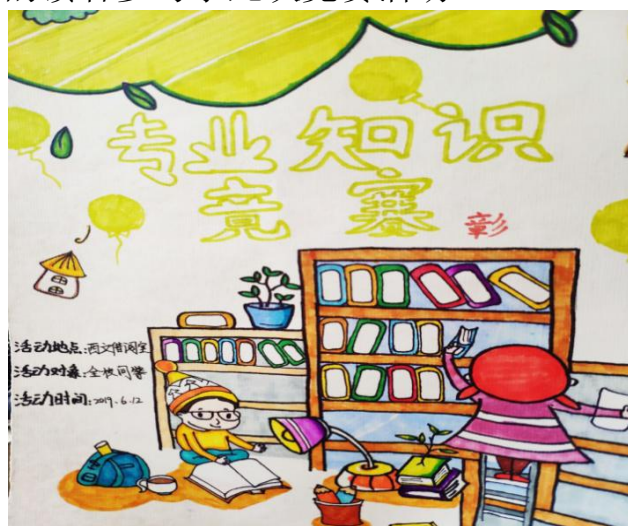 专业知识
竞赛 彰
活动地点:西文借阅室
活动对象:全校同学
活动时间:2019.6.12